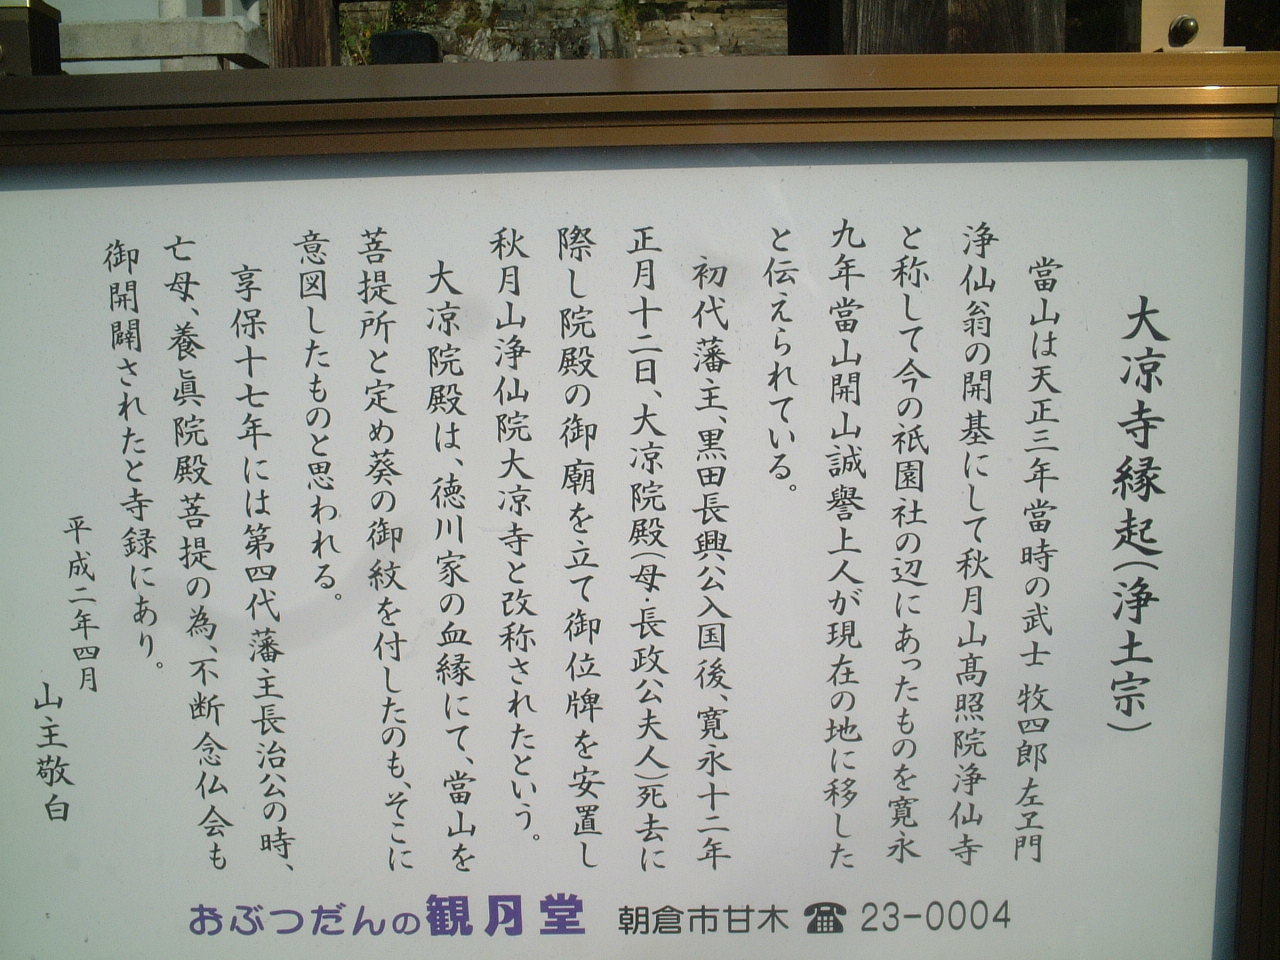 大凉寺縁起（浄土宗）
當山は天正三年當時の武士 牧四郎左ヱ門
浄仙翁の開基にして秋月山髙照院浄仙寺
と称して今の祇園社の辺にあったものを寛永
九年當山開山誠譽上人が現在の地に移した
と伝えられている。
初代藩主、黒田長興公入国後、寛永十二年
正月十二日、大凉院殿（母・長政公夫人）死去に
際し院殿の御廟を立て御位牌を安置し
秋月山浄仙院大凉寺と改称されたという。
大凉院殿は、徳川家の血縁にて、當山を
菩提所と定め葵の御紋を付したのも、そこに
意図したものと思われる。
享保十七年には第四代藩主長治公の時、
亡母、養眞院殿菩提の為、不断念仏会も
御開闢されたと寺録にあり。
平成二年四月
山主敬白
おぶつだんの観月堂 朝倉市甘木 ☎ 23-0004